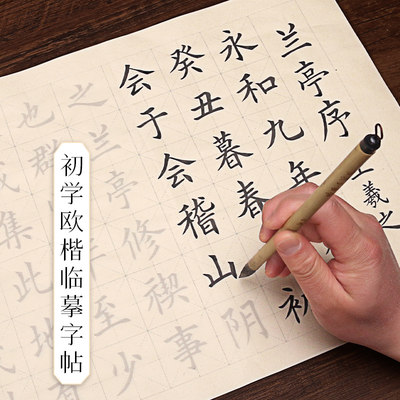 兰亭序
王羲之
永和九年
癸丑暮春初
会于会稽山阴
之兰亭修禊事
也群至少
集此地
初学欧楷临摹字帖